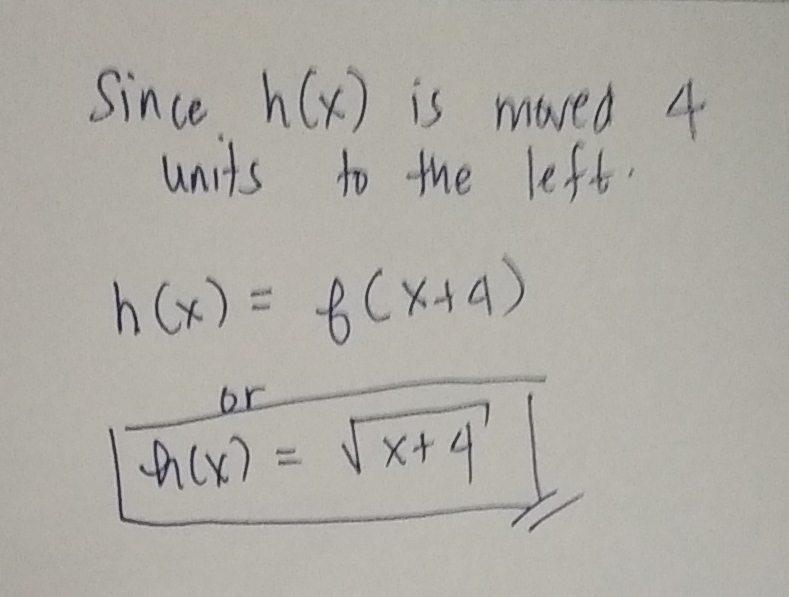 Since h(x) is moved 4
units to the left.
h(x) = f(x+4)
or
h(x) = √x+4